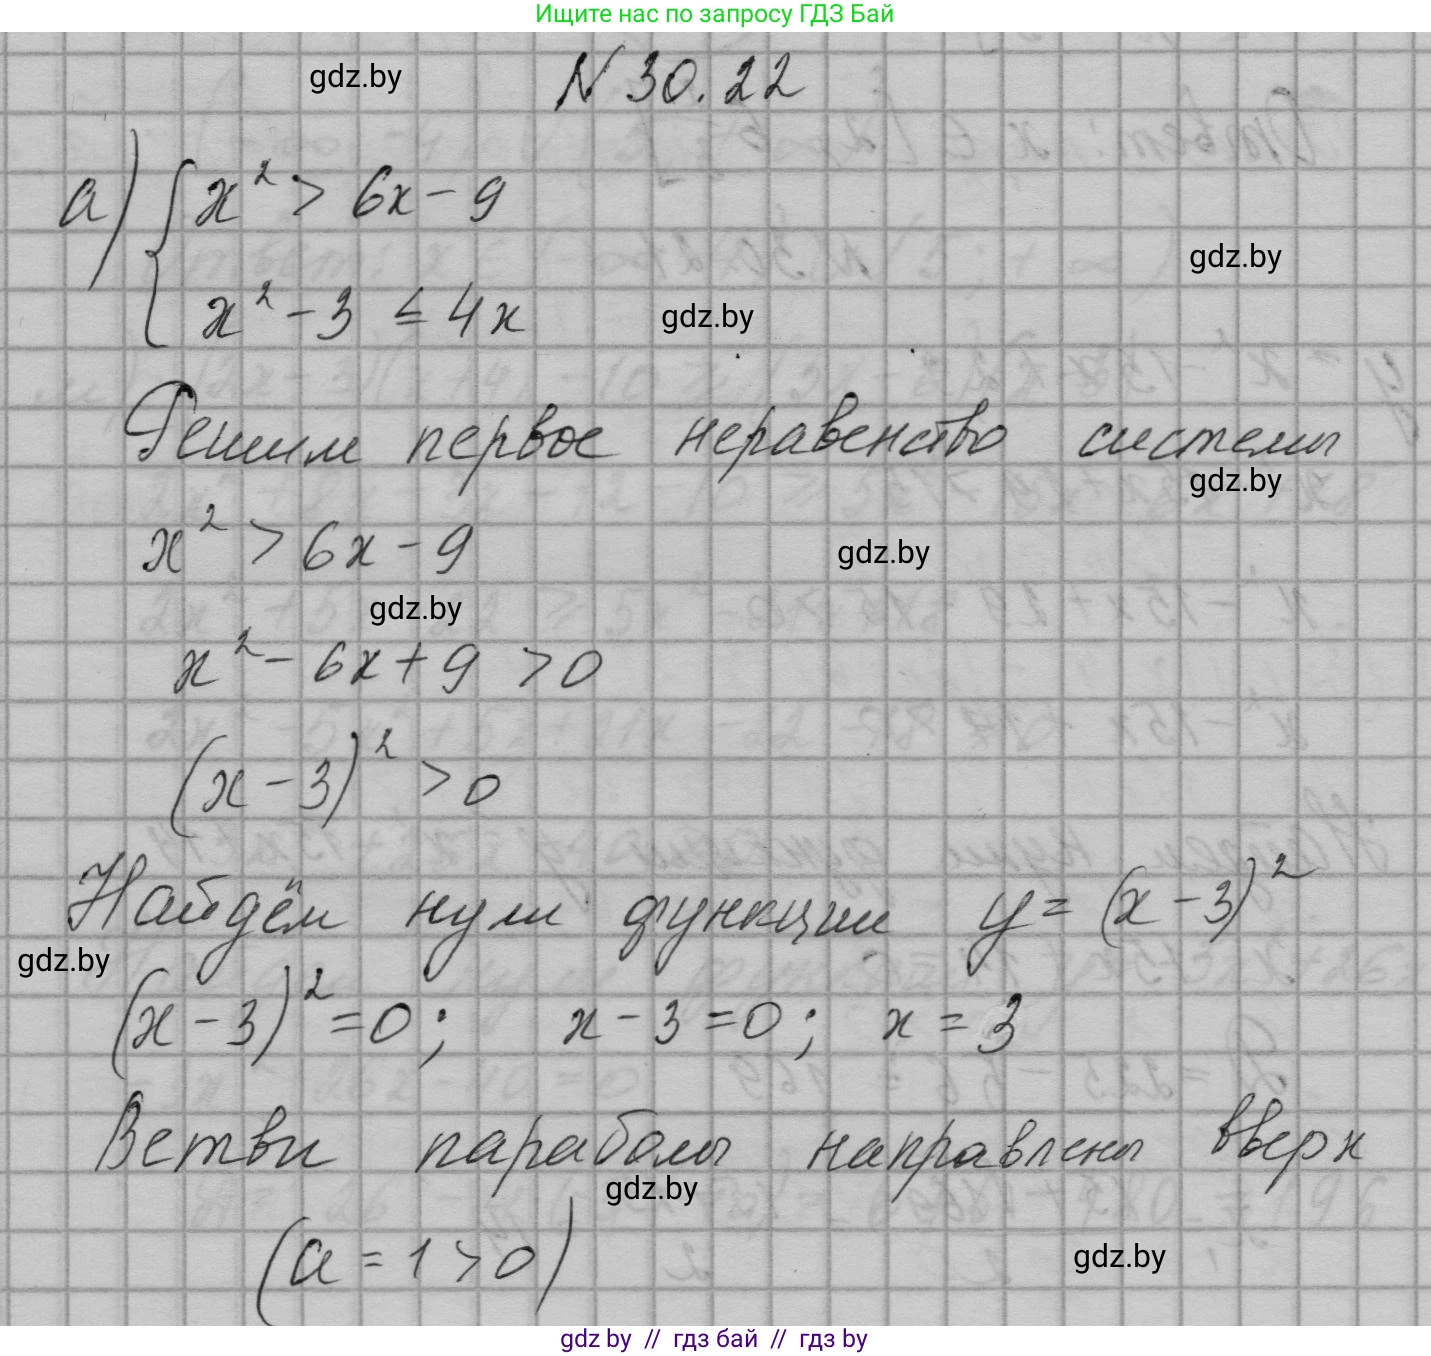 Ищите нас по запросу ГДЗ Бай
gdz.by
N 30.22
а) { x² > 6x - 9
gdz.by
x² - 3 ≤ 4x
gdz.by
Решим первое неравенство системы
gdz.by
x² > 6x - 9
gdz.by
gdz.by
x² - 6x + 9 > 0
(x - 3)² > 0
Найдём нули функции y = (x - 3)²
gdz.by
(x - 3)² = 0; x - 3 = 0; x = 3
Ветви параболы направлены вверх
gdz.by
(a = 1 > 0)
gdz.by
gdz by // гдз бай // гдз by